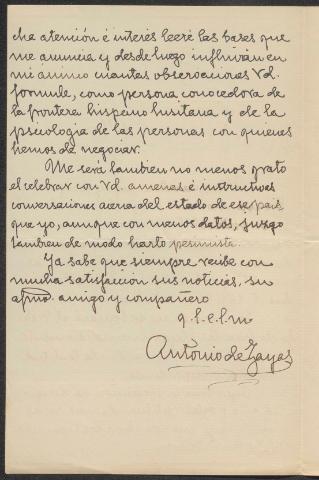 cha atención é interés leeré las bases que
me anuncia y desde luego influirán en
mi ánimo cuantas observaciones Vd.
formule, como persona conocedora de
la frontera hispano lusitana y de la
psicologia de las personas con quienes
hemos de negociar.
Me será tambien no menos grato
el celebrar con Vd. amenas é instructivas
conversaciones acerca del estado de ese pais
que yo, aunque con menos datos, juzgo
tambien de modo harto pesimista.
Ya sabe que siempre recibe con
mucha satisfacción sus noticias, su
afmo. amigo y compañero
q. l. e. l. m
Antonio de Zayas